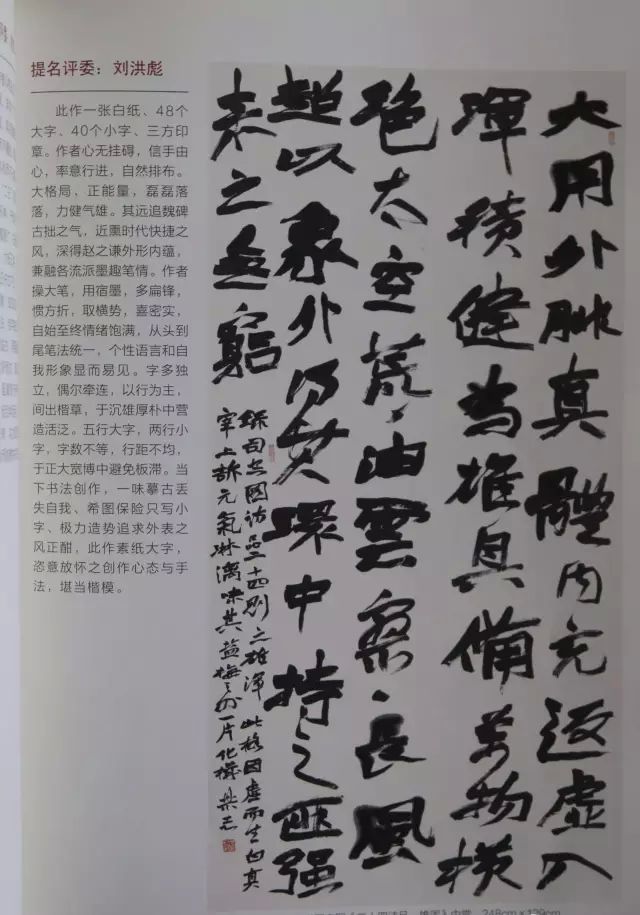 提名评委：刘洪彪
此作一张白纸、48个
大字、40个小字、三方印
章。作者心无挂碍，信手由
心，率意行进，自然排布。
大格局、正能量，磊磊落
落，力健气雄。其远追魏碑
古拙之气，近熏时代快捷之
风，深得赵之谦外形内蕴，
兼融各流派墨趣笔情。作者
操大笔，用宿墨，多扁锋，
惯方折，取横势，喜密实，
自始至终情绪饱满，从头到
尾笔法统一，个性语言和自
我形象显而易见。字多独
立，偶尔牵连，以行为主，
间出楷草，于沉雄厚朴中营
造活泛。五行大字，两行小
字，字数不等，行距不均，
于正大宽博中避免板滞。当
下书法创作，一味摹古丢
失自我、希图保险只写小
字、极力造势追求外表之
风正酣，此作素纸大字，
恣意放怀之创作心态与手
法，堪当楷模。
大用外腓真體内充返虚入
渾積健为雄具備萬物横
绝太空荒、油雲寥、長風
超以象外得其環中持之匪强
来之無窮
司空圖诗品二十四則之雄渾 此格因虚而生白真
宰上訴元氣淋漓味其盐梅之外一片化機